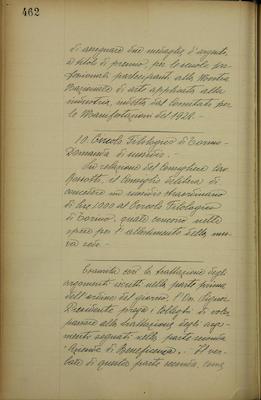 462
di assegnare due medaglie d'argento,
a titolo di premio, per le scuole pro-
fessionali partecipanti alla Mostra
Nazionale di arte applicata alla
industria, indetta dal Comitato per
le Manifestazioni del 1928.-
10. Circolo Filologico di Torino-
Domanda di sussidio.-
Su relazione del Consigliere
il Consiglio delibera di
concedere un sussidio straordinario
di lire 1000 al Circolo Filologico
di Torino, quale concorso nelle
spese per l'allestimento della nuo-
va sede.-
Esaurita così la trattazione degli
argomenti iscritti nella parte prima
dell'ordine del giorno, l'On. Signor
Presidente prega i colleghi di voler
passare alla trattazione degli argo-
menti segnati nella parte seconda
"Azienda di Beneficenza". Il ver-
bale di questa parte seconda, come